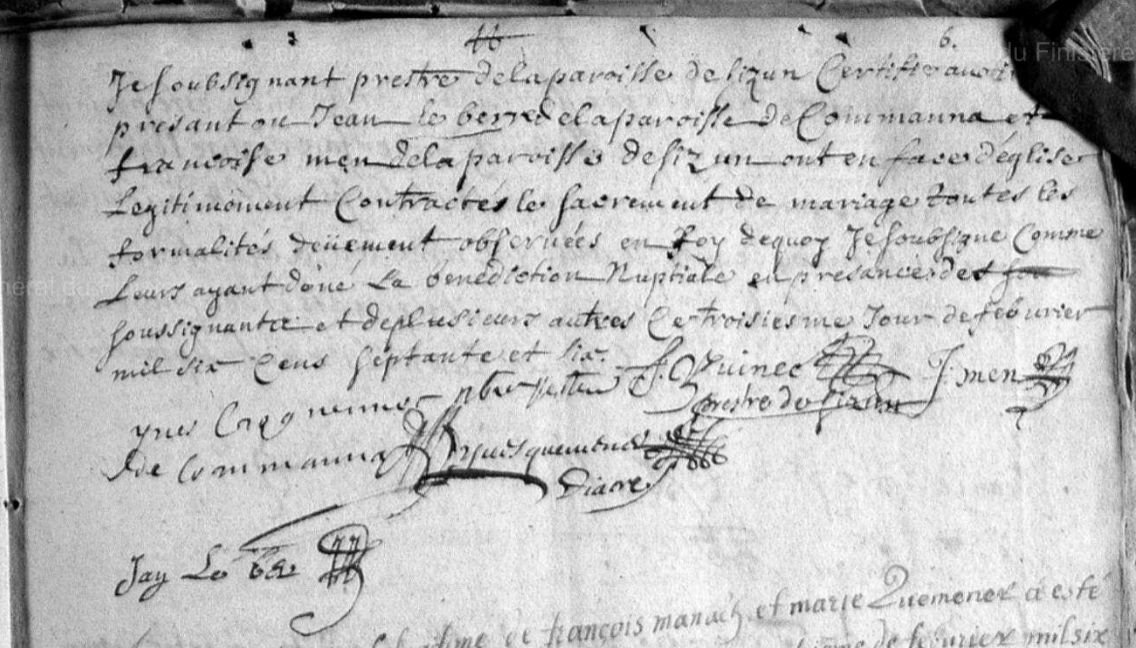 6.
Je soubsignant prestre de la paroisse de sizun Certifie
presant on Jean le berre de la paroisse de Commanna et
francoise men de la paroisse de sizun ont en face déglise
Legitimement Contractés le sacrement de mariage toutes les
formalités deüement obseruées en foy dequoy Je soubsigne Comme
Leurs ayant doné La benediction Nuptiale en presance des
soussignantz et de plusieurs autres Ce troisiesme Jour de feburier
mil six Cens septante et six.
prestre de sizun
J: men
yues
de Commanna
yues quemener
Diacre
Jay Le ber
de françois manach et marie Quemener a esté
de feburier mil six
du Finistère